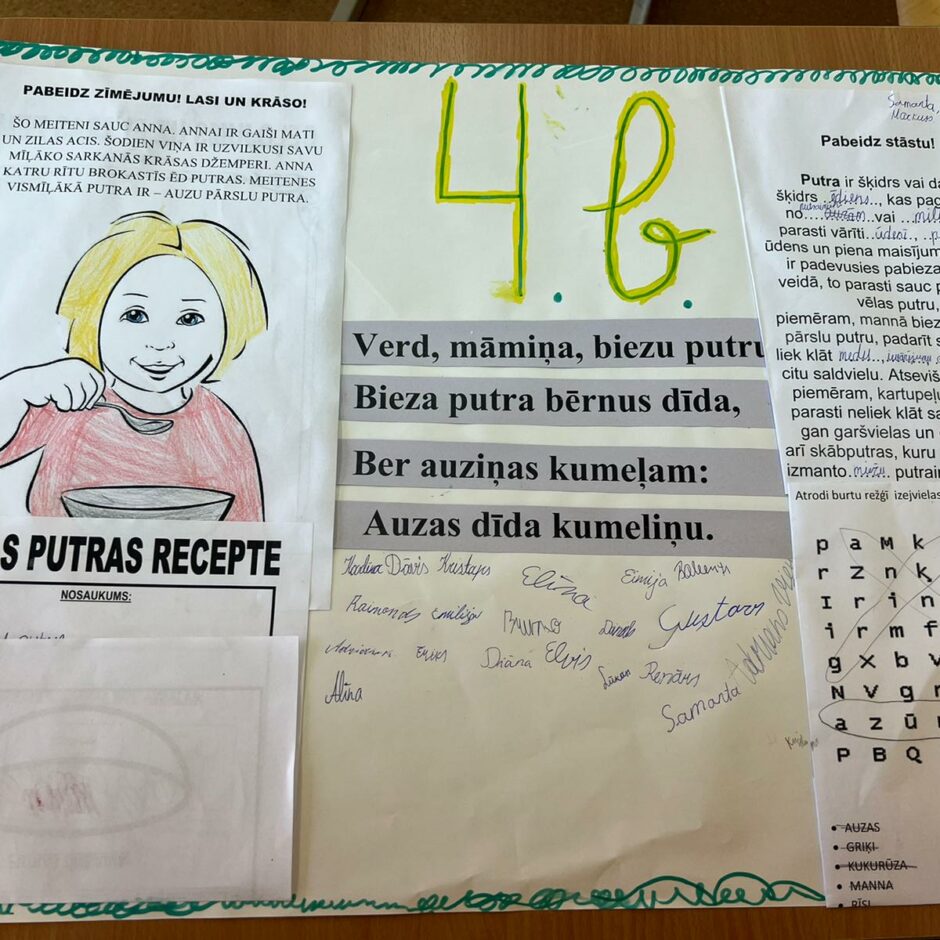 PABEIDZ ZĪMĒJUMU! LASI UN KRĀSO!
ŠO MEITENI SAUC ANNA. ANNAI IR GAIŠI MATI
UN ZILAS ACIS. ŠODIEN VIŅA IR UZVILKUSI SAVU
MĪĻĀKO SARKANĀS KRĀSAS DŽEMPERI. ANNA
KATRU RĪTU BROKASTĪS ĒD PUTRAS. MEITENES
VISMĪĻĀKĀ PUTRA IR – AUZU PĀRSLU PUTRA.
S PUTRAS RECEPTE
NOSAUKUMS:
4. b.
Verd, māmiņa, biezu putru
Bieza putra bērnus dīda,
Ber auziņas kumeļam:
Auzas dīda kumeliņu.
Dāvis Kristaps
Elīna
Raimonds Emīlija
Bruno
Gustavs
Diāna Elvis
Renārs
Alīna
Samanta
Samanta,
Markuss
Pabeidz stāstu!
Putra ir šķidrs vai
šķidrs ..ēdiens.., kas
no.... vai
parasti vārīti..ūdenī..,
ūdens un piena maisījum
ir padevusies pabieza
veidā, to parasti sauc
vēlas putru,
piemēram, mannā biez
pārslu putru, padarīt
liek klāt medu..,
citu saldvielu. Atseviš
piemēram, kartupeļu
parasti neliek klāt
gan garšvielas un
arī skābputras, kuru
izmanto.miežu. putrain
Atrodi burtu režģī izejvielas
p a M k
r z n ķ
I r i n
i r m f
g x b v
N v g r
a z ū
P B Q
• AUZAS
• GRIĶI
• KUKURŪZA
• MANNA
• RĪSI